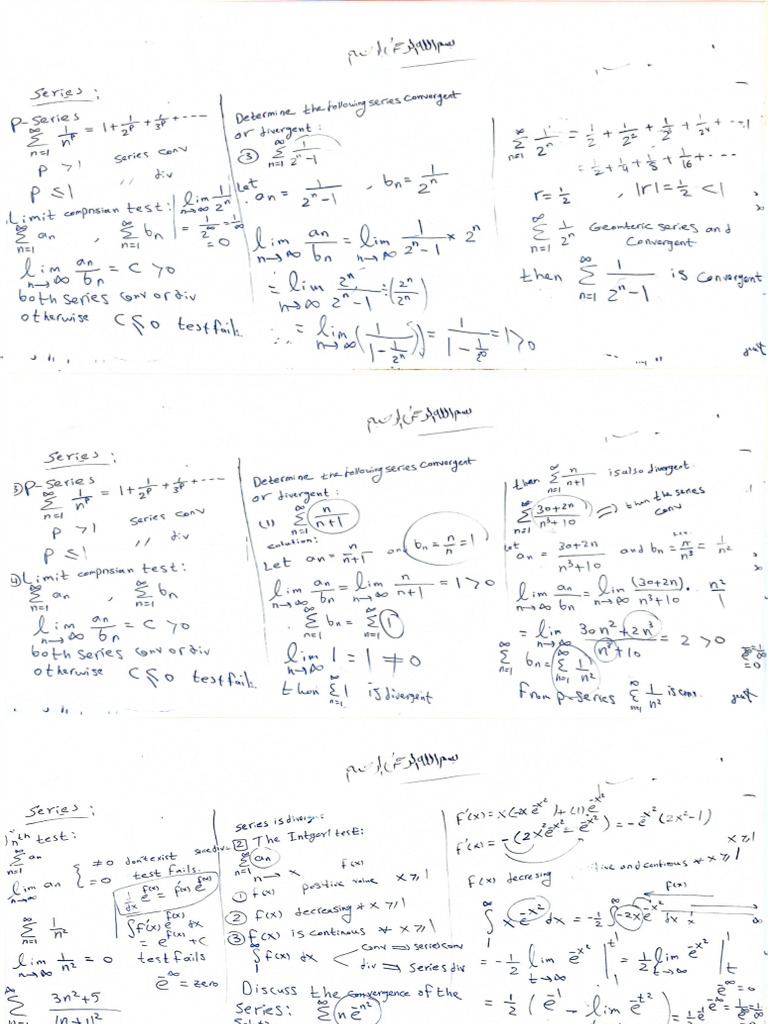 بسم الله الرحمن الرحيم
Series:
P-series
∑_{n=1}^{∞} 1/n^p = 1 + 1/2^p + 1/3^p + ----
P > 1 series conv
P ≤ 1 ,, div
Limit compnsian test:
∑_{n=1}^{∞} an , ∑_{n=1}^{∞} bn
lim_{n→∞} an/bn = C > 0
both series conv or div
otherwise C ≤ 0 test fail.
lim_{n→∞} 1/2^n
= 1/2^∞ = 1/∞
= 0
Determine the following series convergent
or divergent:
③ ∑_{n=1}^{∞} 1/(2^n-1)
Let
an = 1/(2^n-1) , bn = 1/2^n
lim_{n→∞} an/bn = lim_{n→∞} 1/(2^n-1) × 2^n
= lim_{n→∞} 2^n/(2^n-1) ÷ (2^n/2^n)
∴ = lim_{n→∞} (1/(1-1/2^n)) = 1/(1-1/2^∞) = 1 > 0
∑_{n=1}^{∞} 1/2^n = 1/2 + 1/2^2 + 1/2^3 + 1/2^4 + ---
= 1/2 + 1/4 + 1/8 + 1/16 + ---
r = 1/2 , |r| = 1/2 < 1
∑_{n=1}^{∞} 1/2^n Geomteric series and
Convergent
then ∑_{n=1}^{∞} 1/(2^n-1) is convergent
بسم الله الرحمن الرحيم
Series:
3) P-series
∑_{n=1}^{∞} 1/n^p = 1 + 1/2^p + 1/3^p + ----
P > 1 series conv
P ≤ 1 ,, div
4) Limit compnsian test:
∑_{n=1}^{∞} an , ∑_{n=1}^{∞} bn
lim_{n→∞} an/bn = C > 0
both series conv or div
otherwise C ≤ 0 test fail.
Determine the following series convergent
or divergent:
(1) ∑_{n=1}^{∞} n/(n+1)
solution:
Let an = n/(n+1) and bn = n/n = 1
lim_{n→∞} an/bn = lim_{n→∞} n/(n+1) = 1 > 0
∑_{n=1}^{∞} bn = ∑_{n=1}^{∞} 1
lim_{n→∞} 1 = 1 ≠ 0
then ∑_{n=1}^{∞} 1 is divergent
then ∑_{n=1}^{∞} n/(n+1) is also divergent.
∑_{n=1}^{∞} (30+2n)/(n^3+10) ⇒ then the series
conv
Let
an = (30+2n)/(n^3+10) and bn = n/n^3 = 1/n^2
lim_{n→∞} an/bn = lim_{n→∞} (30+2n)/(n^3+10) · n^2/1
= lim_{n→∞} (30n^2+2n^3)/(n^3+10) = 2 > 0
∑_{n=1}^{∞} bn = ∑_{n=1}^{∞} 1/n^2
From p-series ∑_{n=1}^{∞} 1/n^2 is con.
بسم الله الرحمن الرحيم
Series:
1) n^th test:
∑_{n=1}^{∞} an
lim_{n→∞} an { ≠0 don't exist series div
=0 test fails.
d/dx e^{f(x)} = f'(x) e^{f(x)}
∫f'(x) e^{f(x)} dx
= e^{f(x)} + C
∑_{n=1}^{∞} 1/n^2
lim_{n→∞} 1/n^2 = 0 test fails
e^{-∞} = zero
∑^{∞} 3n^2+5
series is diverge:
2 The Intgarl test:
∑_{n=1}^{∞} an
n → x f(x)
① f(x) positive value x ≥ 1
② f(x) decreasing ∀ x ≥ 1
③ f(x) is continous ∀ x ≥ 1
∫_1^∞ f(x) dx < conv ⇒ series conv
div ⇒ series div
Discuss the convergence of the
Series: ∑^{∞} n e^{-n^2}
f'(x) = x(-2x e^{-x^2}) + (1) e^{-x^2}
f'(x) = -(2x^2 e^{-x^2} - e^{-x^2}) = -e^{-x^2}(2x^2-1)
x ≥ 1
f(x) decresing
positive and continous ∀ x ≥ 1
f(x)
∫_1^∞ x e^{-x^2} dx = -1/2 ∫_1^∞ -2x e^{-x^2} dx
= -1/2 lim_{t→∞} e^{-x^2} |_1^t = 1/2 lim_{t→∞} e^{-x^2} |_t^1
= 1/2 (e^{-1} - lim_{t→∞} e^{-t^2}) =